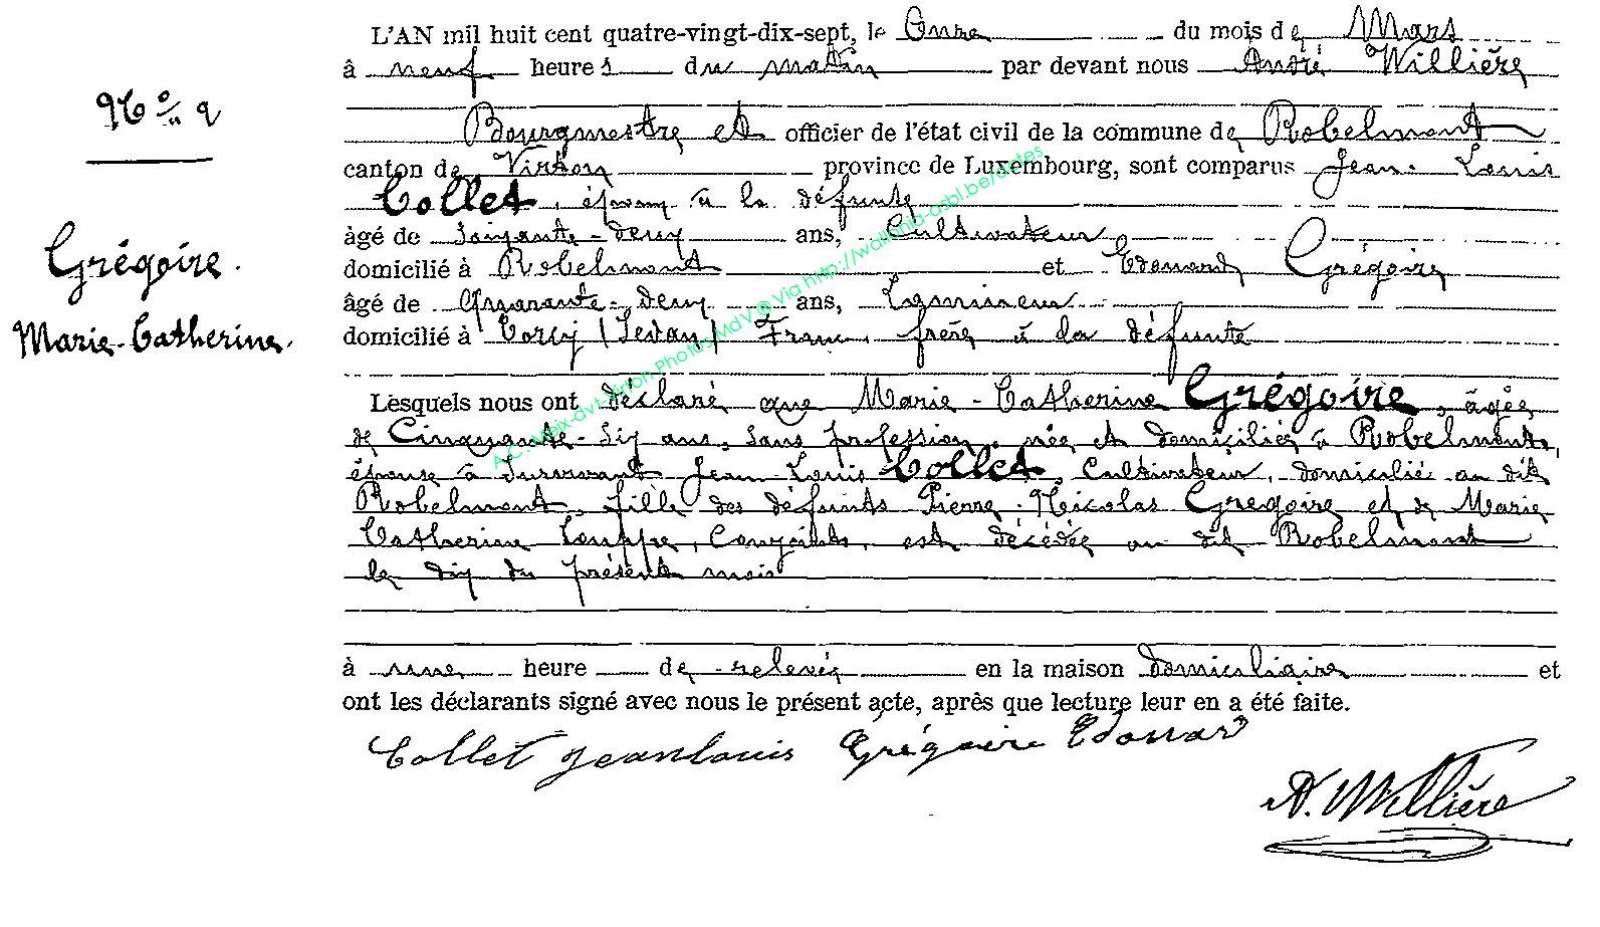 L'AN mil huit cent quatre-vingt-dix-sept, le Onze du mois de Mars
à neuf heures du matin par devant nous André Willière
N° 9
Bourgmestre et officier de l'état civil de la commune de Robelmont
canton de Virton province de Luxembourg, sont comparus Jean-Louis
Collet, époux à la défunte
Grégoire.
âgé de soixante-deux ans, Cultivateur
domicilié à Robelmont et Edouard Grégoire
âgé de quarante-deux ans, Lamineur
Marie-Catherine.
domicilié à Torcy (Sedan) France, frère à la défunte
Lesquels nous ont déclaré que Marie-Catherine Grégoire, âgée
de Cinquante-six ans, sans profession, née et domiciliée à Robelmont,
épouse à survivant Jean-Louis Collet, Cultivateur, domicilié au dit
Robelmont, fille des défunts Pierre-Nicolas Grégoire et de Marie
Catherine Louppe, Conjoints, est décédée au dit Robelmont
le dix du présent mois
à une heure de relevée en la maison domiciliaire et
ont les déclarants signé avec nous le présent acte, après que lecture leur en a été faite.
Collet jeanlouis Grégoire Edouard
A. Willière
A.C. Meix-dvt-Virton Photos MdV @ Via http://wallonia-asbl.be/actes